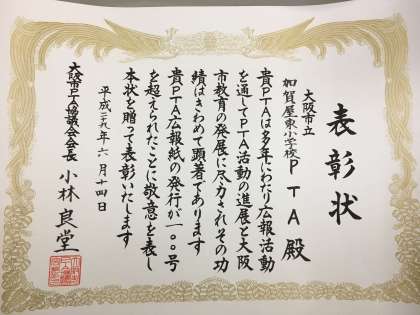 表彰状
大阪市立
加賀屋東小学校PTA殿
貴PTAは多年にわたり広報活動
を通してPTA活動の進展と大阪
市教育の発展に尽力されその功
績はきわめて顕著であります
貴PTA広報紙の発行が一〇〇号
を超えられたことに敬意を表し
本状を贈って表彰いたします
平成二十九年六月十四日
大阪市PTA協議会会長 小林良堂